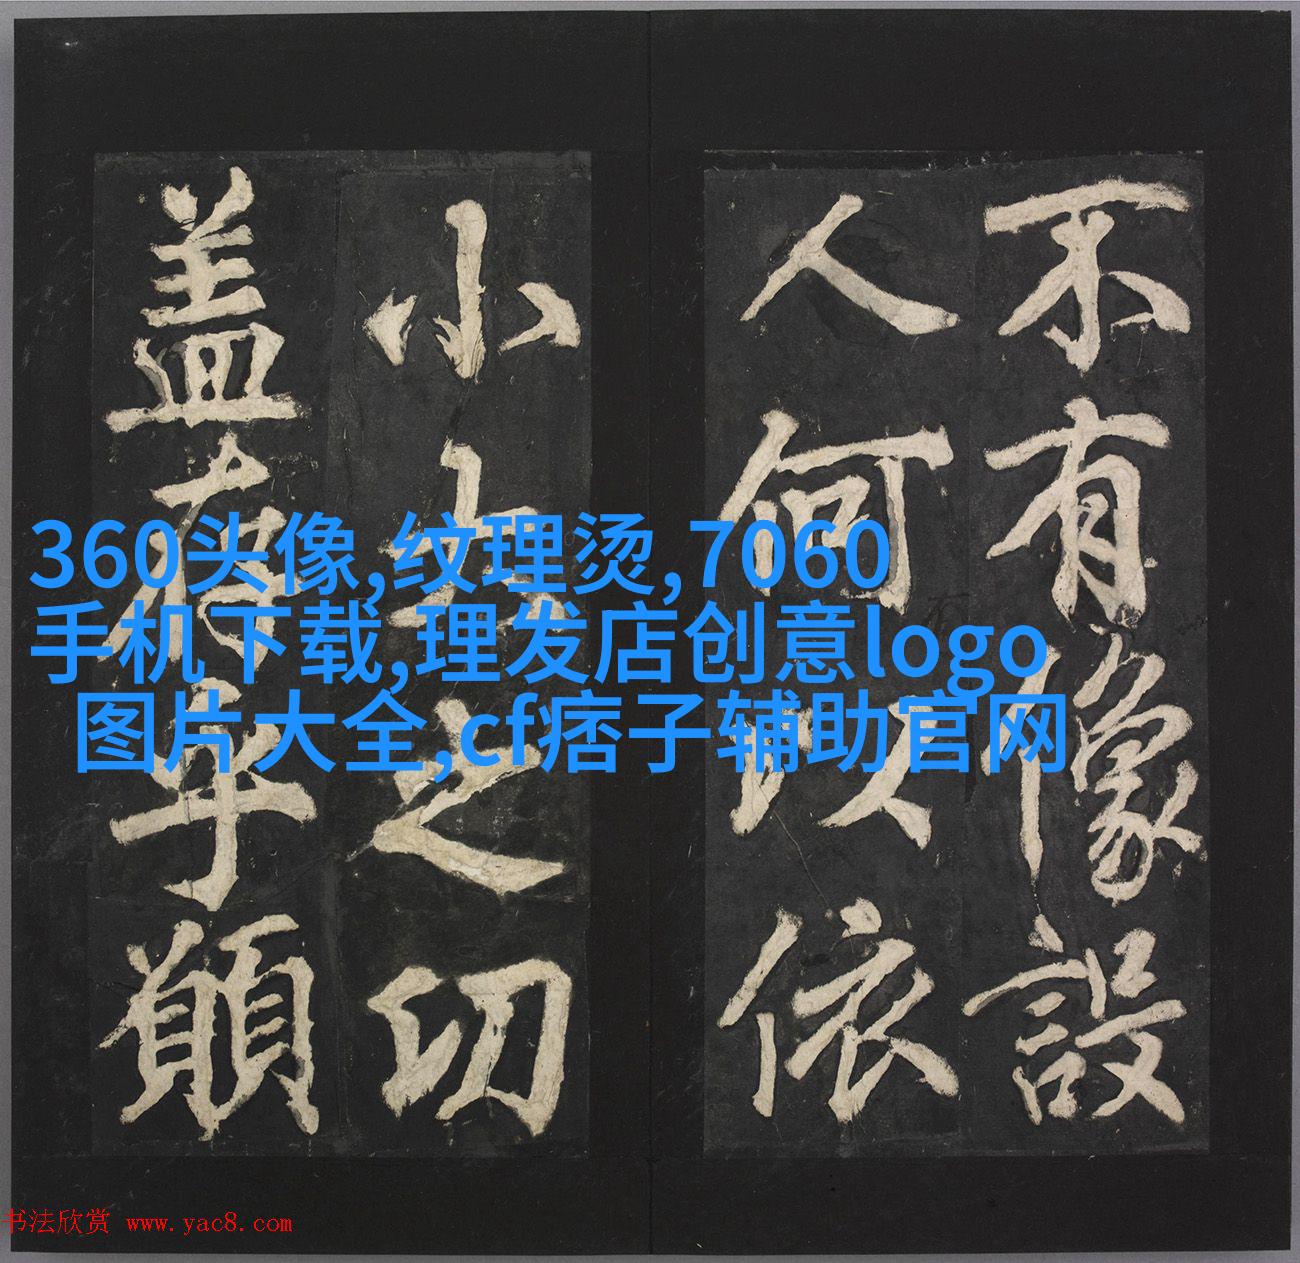 不有像設
人何以依
小大之切
盖存乎願
360头像,纹理烫,7060
手机下载,理发店创意logo
图片大全,cf痞子辅助官网
书法欣赏 www.yac8.com